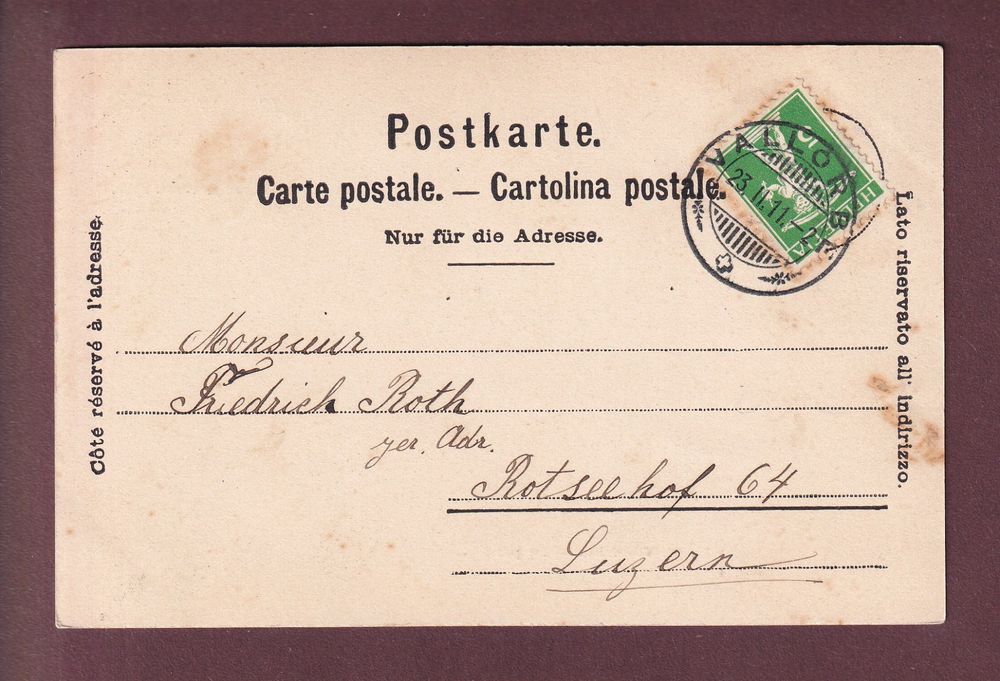 Postkarte.
Carte postale. — Cartolina postale.
Nur für die Adresse.
Côté réservé à l'adresse.
Lato riservato all' indirizzo.
VALLORB
23.II.11.–2
HEL
VA
Monsieur
Friedrich Roth
per. Adr.
Rotseehof 64
Luzern